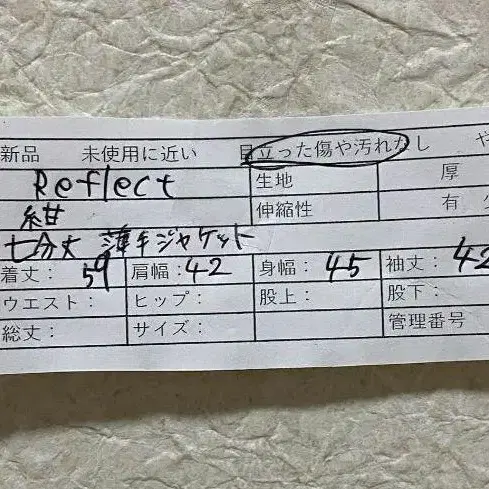 新品 未使用に近い 目立った傷や汚れなし や
Reflect 生地 厚
紺 伸縮性 有
七分丈 薄手ジャケット
着丈： 59 肩幅：42 身幅： 45 袖丈： 42
ウエスト： ヒップ： 股上： 股下：
総丈： サイズ： 管理番号